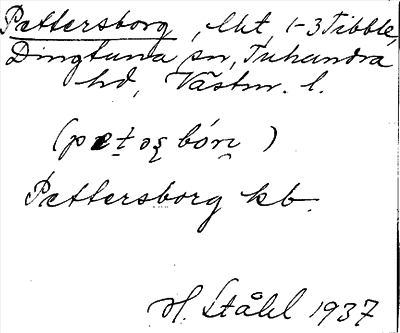 Pættersborg, lht, 1-3 Tibble,
Dingtuna sn, Tuhundra
hd, Västm. l.
(pæt əʂ bórj )
Pættersborg kb.
H. Ståhl 1937